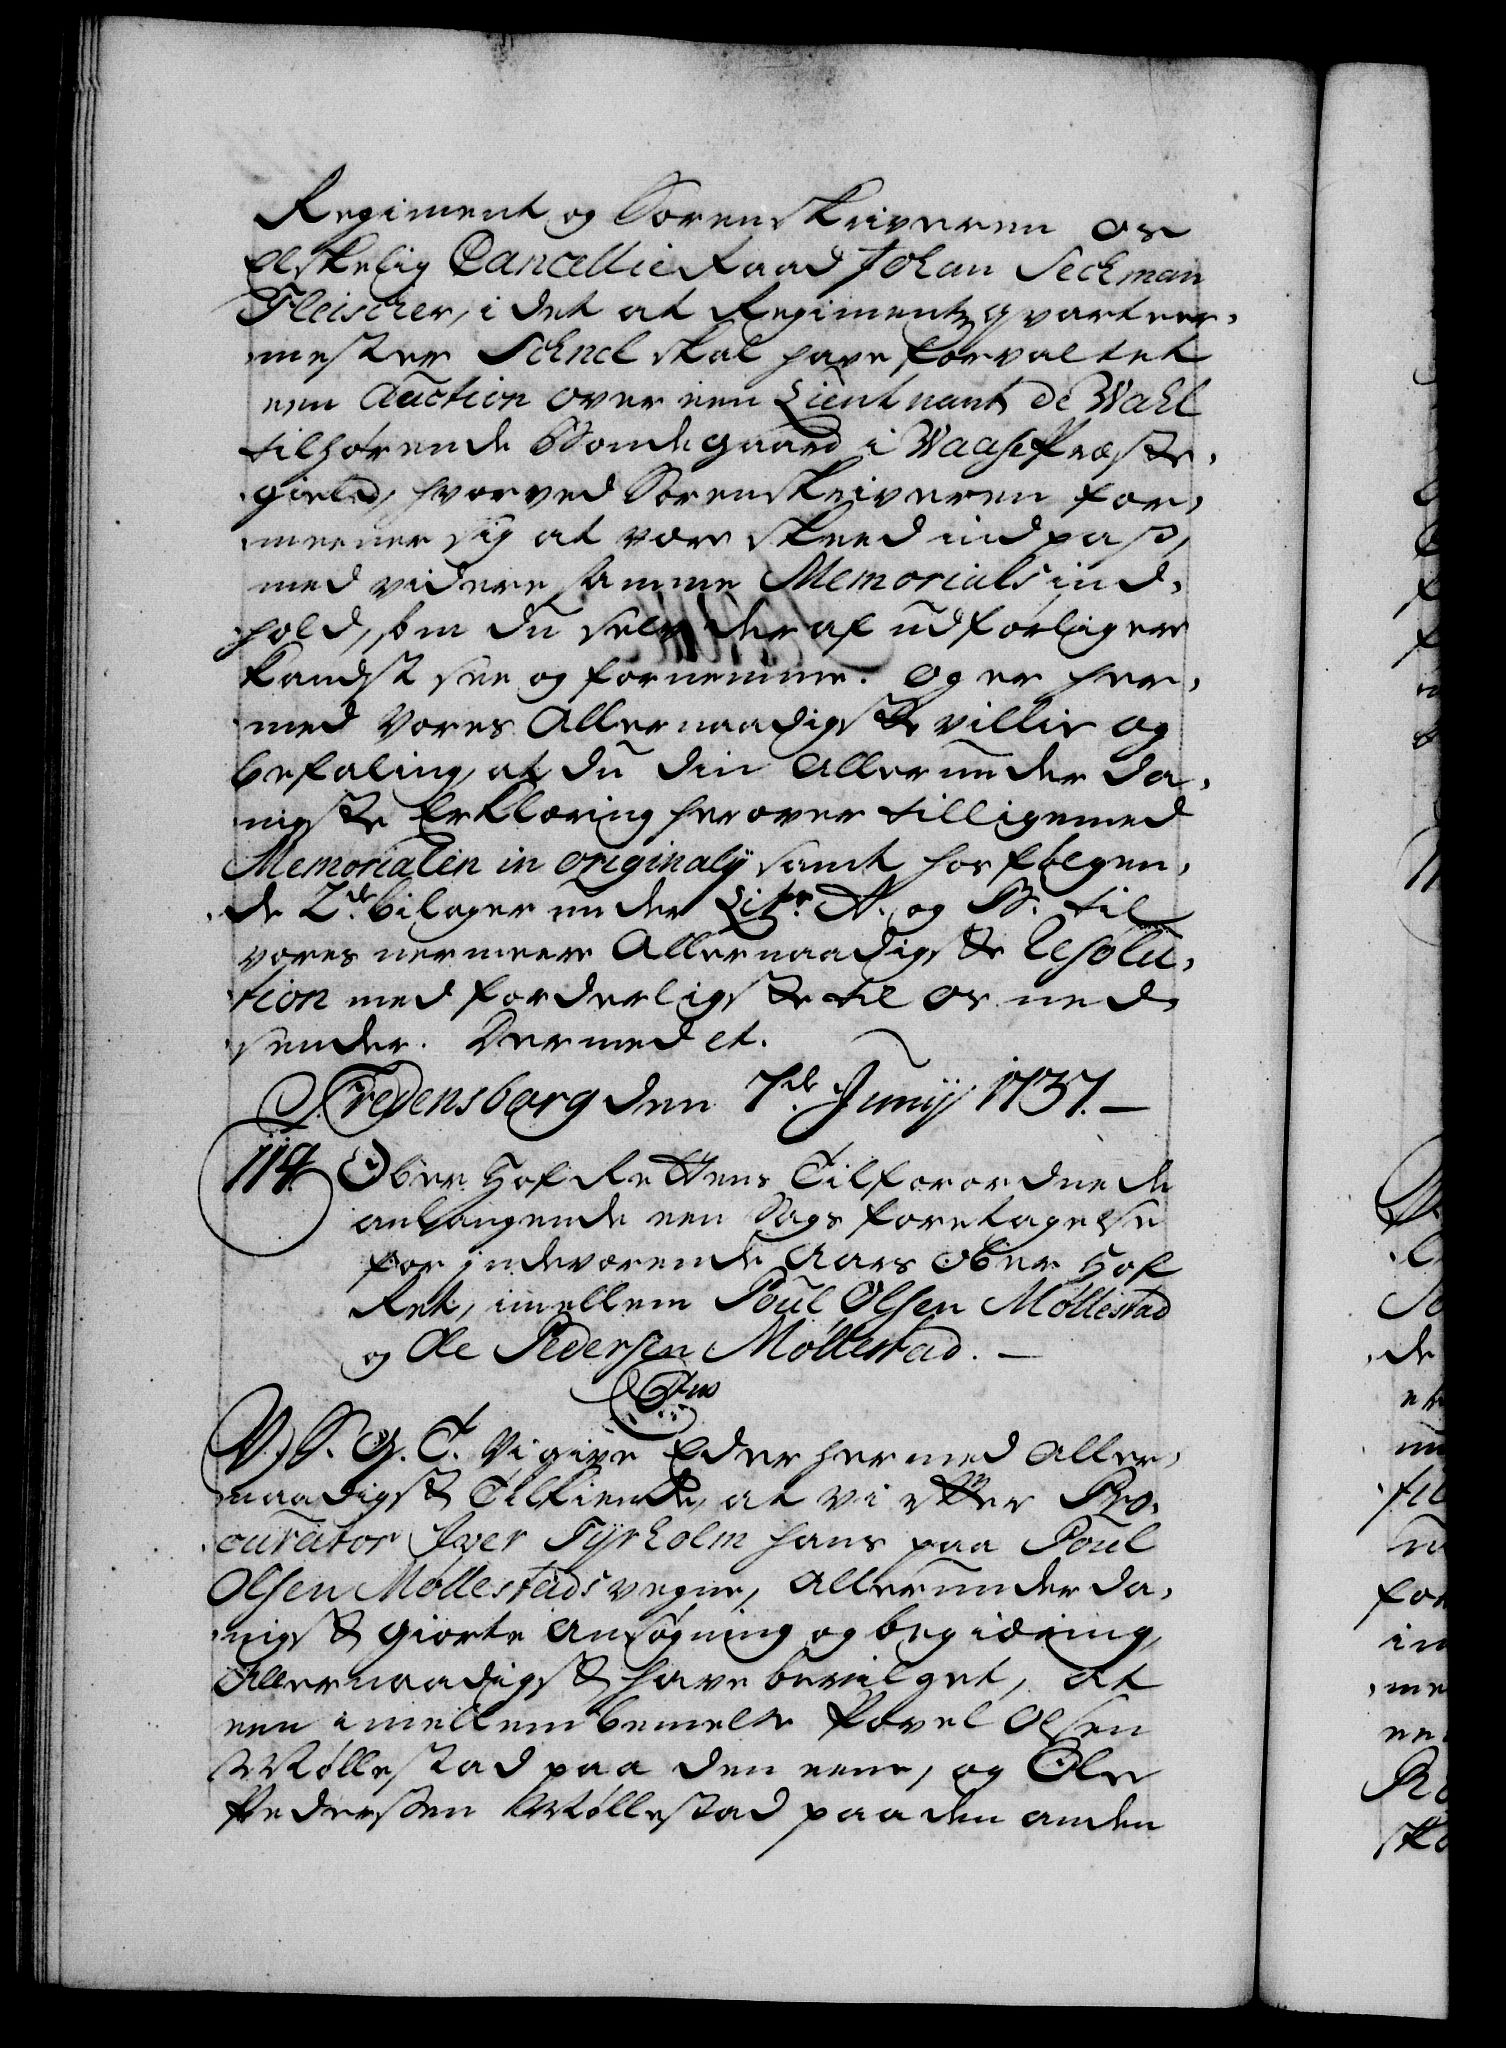 Regiment og Sorenskriveren os
Elskelig Cancellie Raad Johan Seckman
Fleischer, i det at Regimentz qvarteer,
mester Schnel skal have forvaltet
een Auction over een Lieutnant de Wahl
tilhørende Bondegaard i Waage Præste,
gield, hvorved Sorenskriveren for,
meener sig at være skeed indpass,
med videre samme Memorials ind,
hold, som du selv der af udførligere
kandst see og fornemme. Og er her,
med Vores Allernaadigste villie og
befaling, at du din allerunder da,
nigste Erklæring herover tilligemed
Memorialen in originaly samt hosfølgen,
de 2de bilager under Litr: A. og B. til
vores nermeere Allernaadigste Resolu,
tion med forderligste til os ned,
sender. Dermed et.
Fredensborg den 7de Junij 1737.
114. Ober Hof Rettens Tilforordnede
anlangende een Sags foretagelse
for indeværende Aars Ober Hof
Ret, imellem Poul Olsen Møllestad
og Ole Pedersen Møllestad.
V. S. G. T. Vi give Eder hermed Aller,
naadigst Tilkiende, at vi efter Pro,
curator Iver Tyrholm hans paa Poul
Olsen Møllestads vegne, Allerunder da,
nigst giorte Ansøgning og begiæring,
Allernaadigst have bevilget, at
een imellem bemelte Povel Olsen
Møllestad paa den eene, og Ole
Pedersen Møllestad paa den anden